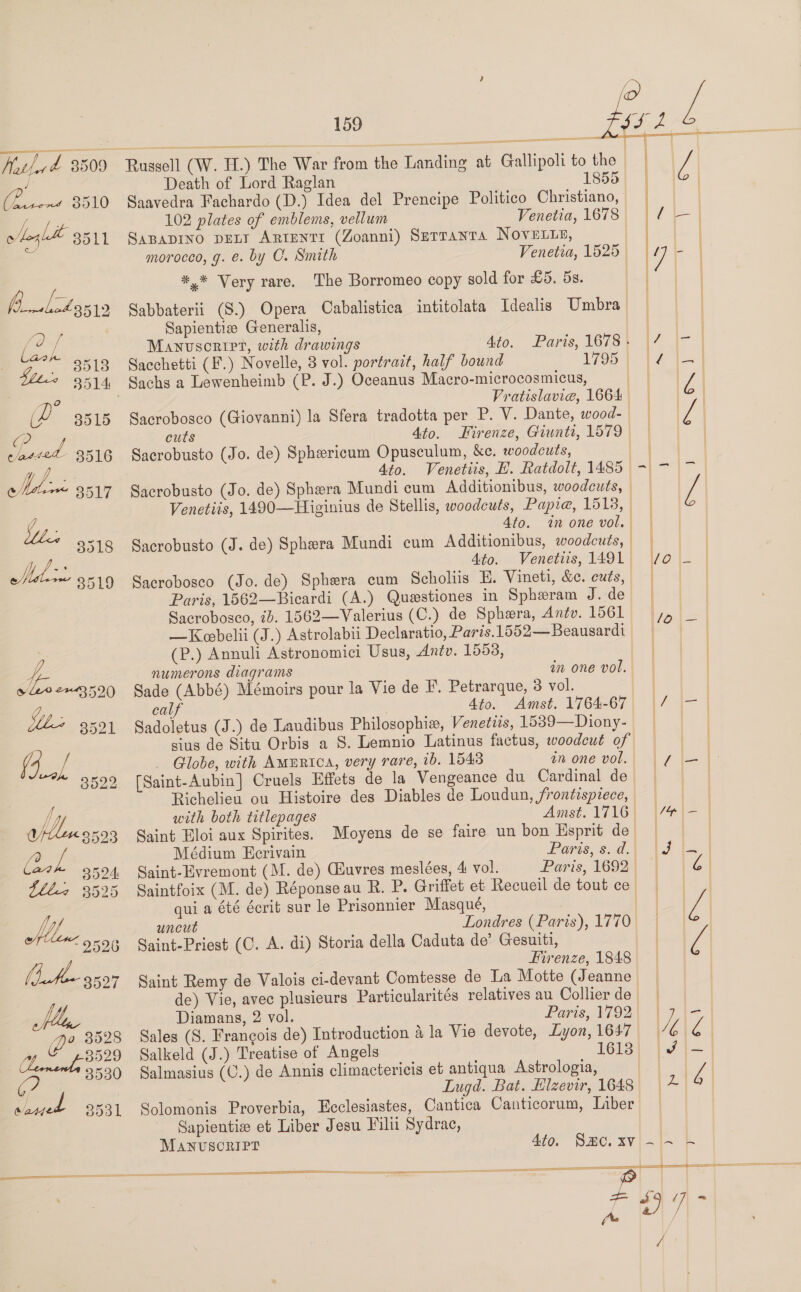 159
3509 Russell (W. H.) The War from the Landing at Gallipoli to the
Death of Lord Raglan 1855
3510 Saavedra Fachardo (D.) Idea del Prencipe Politico Christiano,
102 plates of emblems, vellum Venetia, 1678
3511 SABADINO DELI ARIENTI (Zoanni) SETTANTA NOVELLE,
morocco, g. e. by C. Smith Venetia, 1525
*** Very rare. The Borromeo copy sold for £5. 5s.
3512 Sabbaterii (S.) Opera Cabalistica intitolata Idealis Umbra
Sapientiæ Generalis,
MANUSCRIPT, with drawings 4to. Paris, 1678
Cash 3513 Sacchetti (F.) Novelle, 3 vol. portrait, half bound 1795
3514 Sachs a Lewenheimb (P. J.) Oceanus Macro-microcosmicus,
Vratislaviæ, 1664
3515 Sacrobosco (Giovanni) la Sfera tradotta per P. V. Dante, wood-
cuts 4to. Firenze, Giunti, 1579
passed 3516 Sacrobusto (Jo. de) Sphæricum Opusculum, &c. woodcuts,
4to. Venetiis, E. Ratdolt, 1485
3517 Sacrobusto (Jo. de) Sphæra Mundi cum Additionibus, woodcuts,
Venetiis, 1490—Higinius de Stellis, woodcuts, Papiæ, 1513,
4to. in one vol.
3518 Sacrobusto (J. de) Sphæra Mundi cum Additionibus, woodcuts,
4to. Venetiis, 1491
3519 Sacrobosco (Jo. de) Sphæra cum Scholiis E. Vineti, &c. cuts,
Paris, 1562—Bicardi (A.) Quæstiones in Sphæram J. de
Sacrobosco, ib. 1562—Valerius (C.) de Sphæra, Antv. 1561
—Kœbelii (J.) Astrolabii Declaratio, Paris. 1552—Beausardi
(P.) Annuli Astronomici Usus, Antv. 1553,
numerons diagrams in one vol.
3520 Sade (Abbé) Mémoirs pour la Vie de F. Petrarque, 3 vol.
calf 4to. Amst. 1764-67
3521 Sadoletus (J.) de Laudibus Philosophiæ, Venetiis, 1539—Diony-
sius de Situ Orbis a S. Lemnio Latinus factus, woodcut of
Globe, with AMERICA, very rare, ib. 1543 in one vol.
3522 [Saint-Aubin] Cruels Effets de la Vengeance du Cardinal de
Richelieu ou Histoire des Diables de Loudun, frontispiece,
with both titlepages Amst. 1716
3523 Saint Eloi aux Spirites. Moyens de se faire un bon Esprit de
Médium Ecrivain Paris, s. d.
Cash 3524 Saint-Evremont (M. de) Œuvres meslées, 4 vol. Paris, 1692
3525 Saintfoix (M. de) Réponse au R. P. Griffet et Recueil de tout ce
qui a été écrit sur le Prisonnier Masqué,
uncut Londres (Paris), 1770
3526 Saint-Priest (C. A. di) Storia della Caduta de' Gesuiti,
Firenze, 1848
3527 Saint Remy de Valois ci-devant Comtesse de La Motte (Jeanne
de) Vie, avec plusieurs Particularités relatives au Collier de
Diamans, 2 vol. Paris, 1792
Do 3528 Sales (S. François de) Introduction à la Vie devote, Lyon, 1647
3529 Salkeld (J.) Treatise of Angels 1613
3530 Salmasius (C.) de Annis climactericis et antiqua Astrologia,
Lugd. Bat. Elzevir, 1648
passed 3531 Solomonis Proverbia, Ecclesiastes, Cantica Canticorum, Liber
Sapientiæ et Liber Jesu Filii Sydrac,
MANUSCRIPT 4to. SÆC. XV